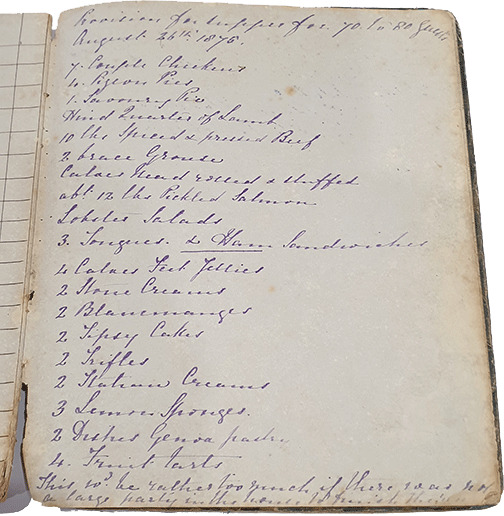 Provision for supper for 70 to 80 guests
August 26th 1875.
7. Couple Chickens
4. Pigeon Pies
1. Savoury Pie
Hind Quarter of Lamb
10 lbs Spiced & pressed Beef
2 brace Grouse
Calves Head rolled & stuffed
abt. 12 lbs Pickled Salmon
Lobster Salads
3. Tongues. & Ham Sandwiches
4 Calves Feet Jellies
2 Stone Creams
2 Blancmanges
2 Tipsy Cakes
2 Trifles
2 Italian Creams
3 Lemon Sponges.
2 Dishes Genoa pastry
4. Fruit tarts
This wd. be rather too much if there was not
a large party in the house to finish